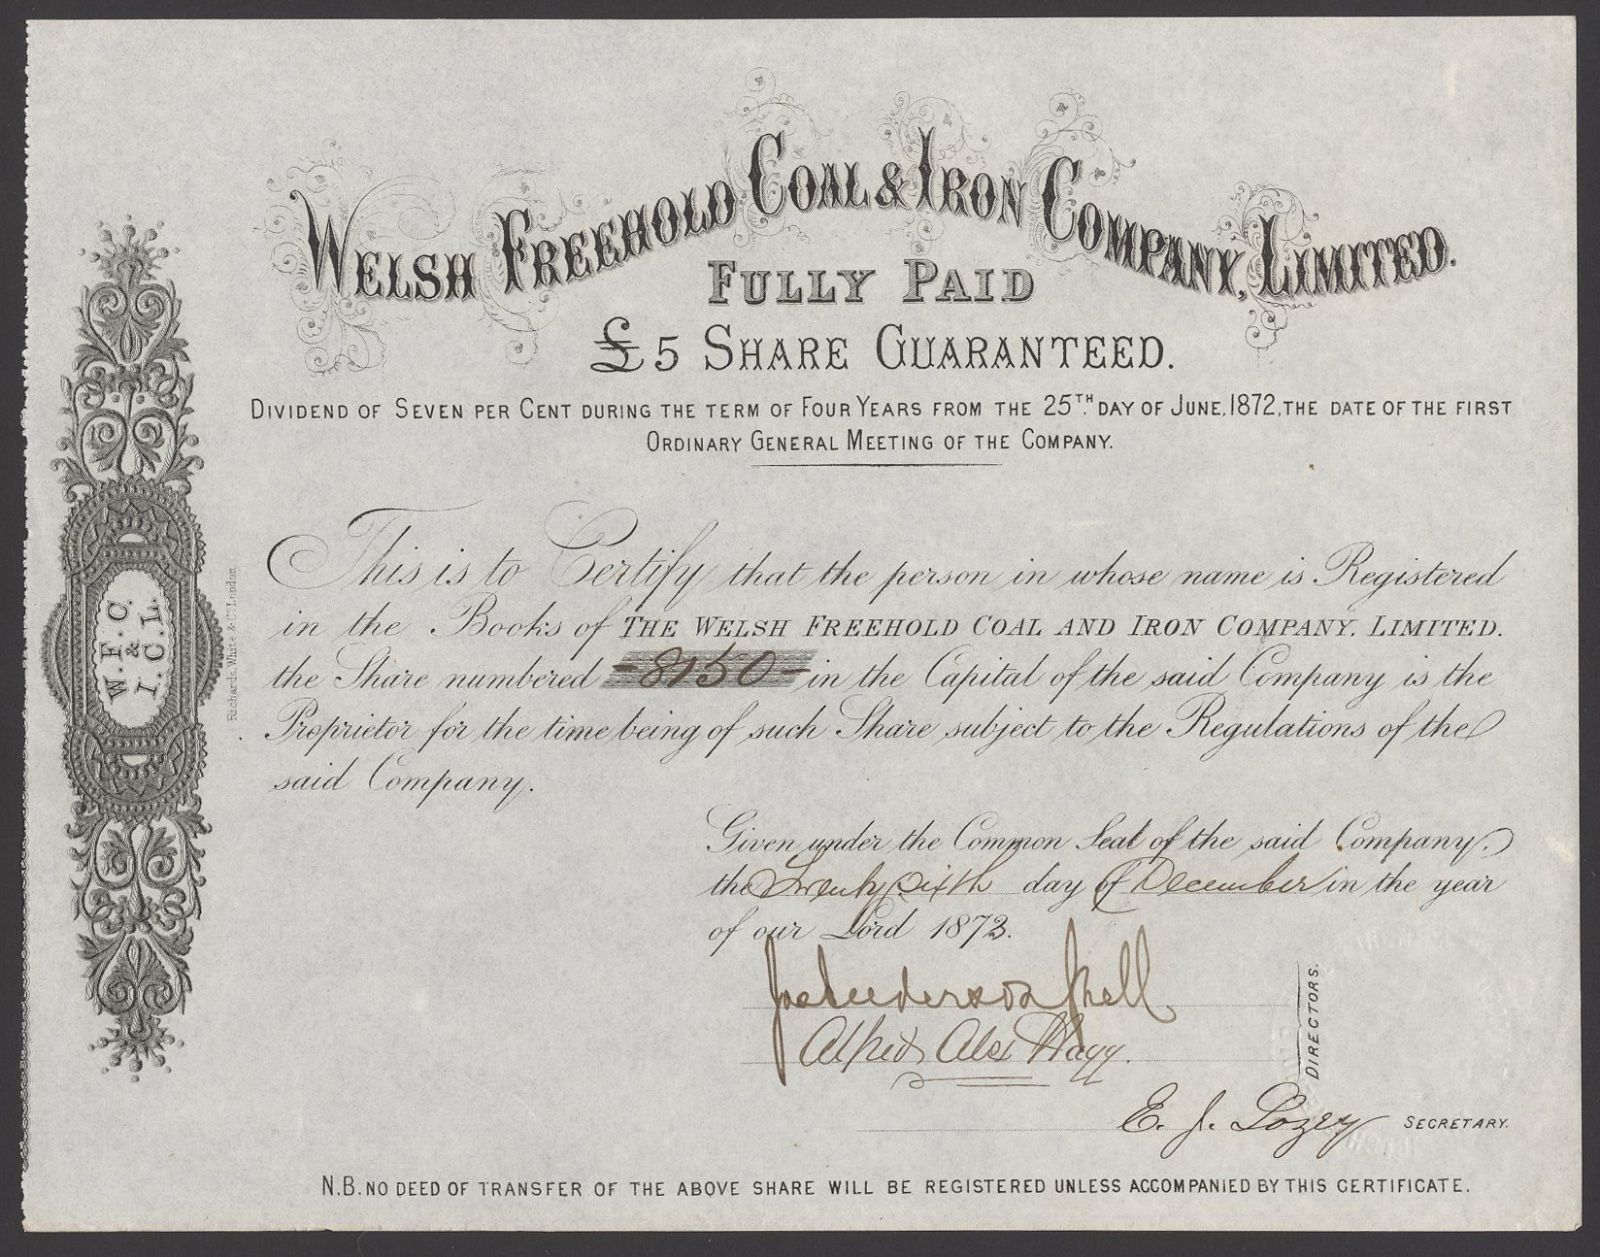 WELSH FREEHOLD COAL & IRON COMPANY, LIMITED.
FULLY PAID
£5 SHARE GUARANTEED.
DIVIDEND OF SEVEN PER CENT DURING THE TERM OF FOUR YEARS FROM THE 25TH DAY OF JUNE, 1872, THE DATE OF THE FIRST
ORDINARY GENERAL MEETING OF THE COMPANY.
W. F. C.
&
I. C. L.
Richards, White & Co. London
This is to Certify that the person in whose name is Registered
in the Books of THE WELSH FREEHOLD COAL AND IRON COMPANY, LIMITED.
the Share numbered -8150- in the Capital of the said Company is the
Proprietor for the time being of such Share subject to the Regulations of the
said Company.
Given under the Common Seal of the said Company,
the Twenty sixth day of December in the year
of our Lord 1873.
Alfred Alex
DIRECTORS.
E. J. SECRETARY.
N.B. NO DEED OF TRANSFER OF THE ABOVE SHARE WILL BE REGISTERED UNLESS ACCOMPANIED BY THIS CERTIFICATE.